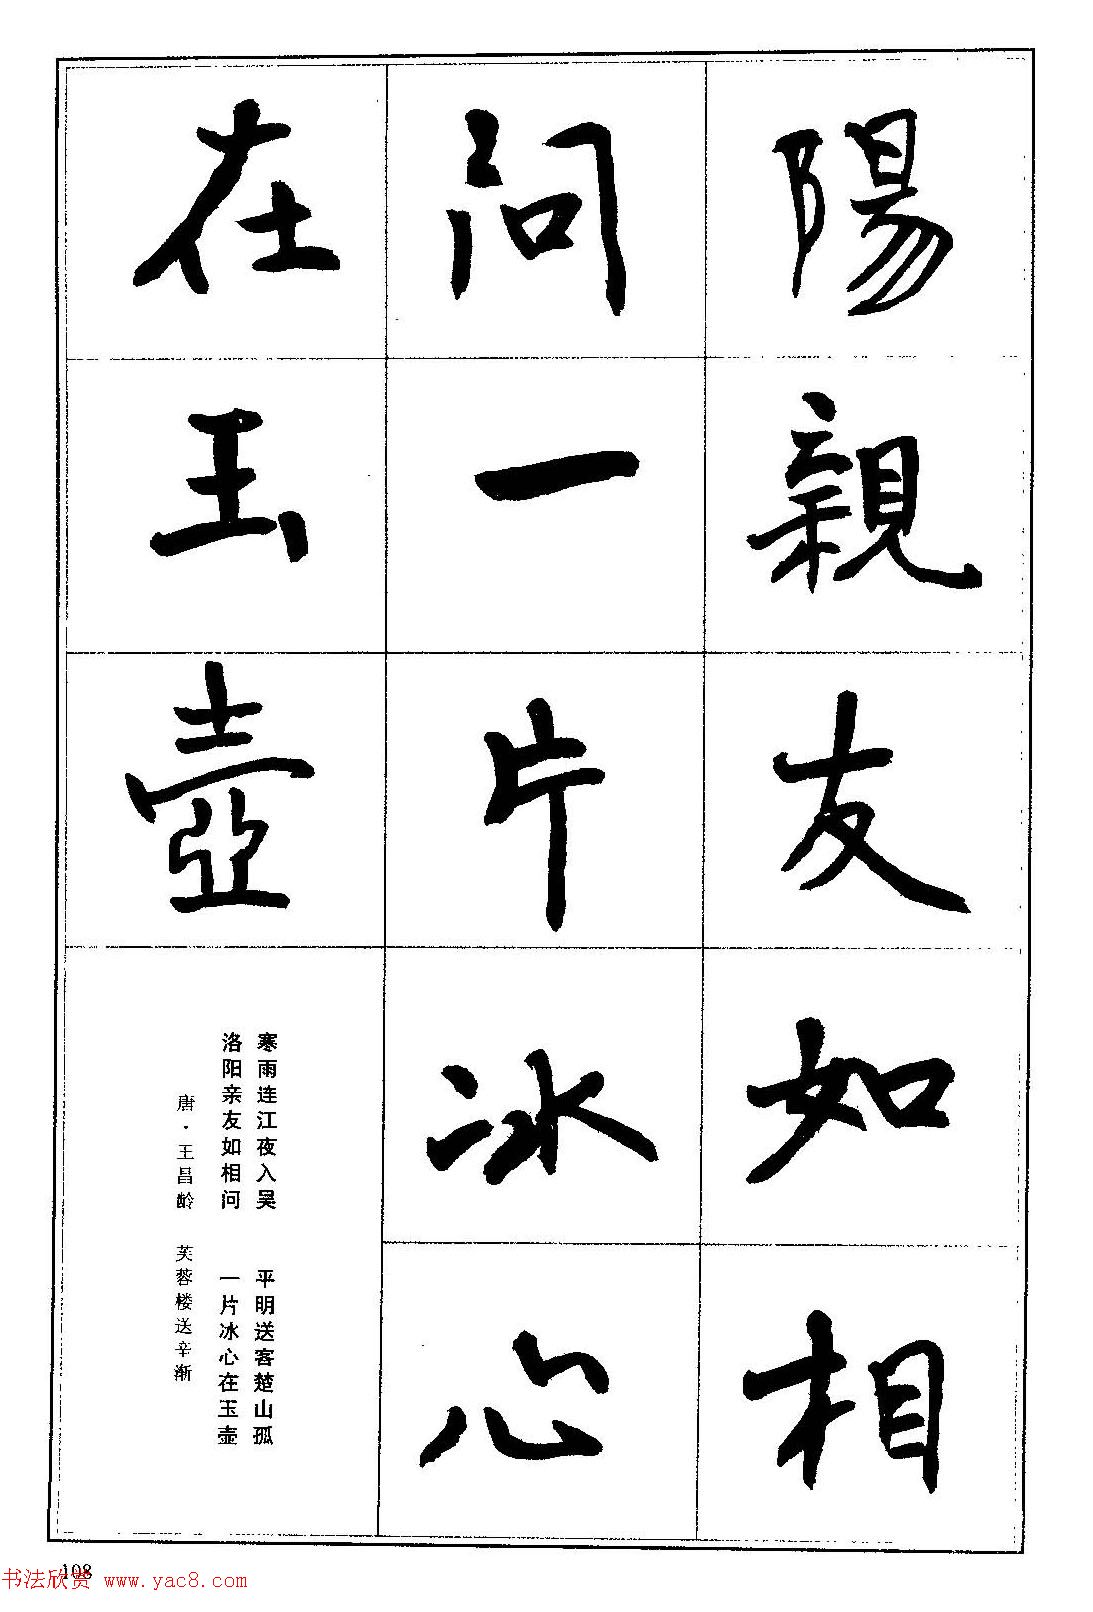 陽親友如相
問一片冰心
在玉壺
寒雨连江夜入吴 平明送客楚山孤
洛阳亲友如相问 一片冰心在玉壶
唐·王昌龄 芙蓉楼送辛渐
108
书法欣赏 www.yac8.com